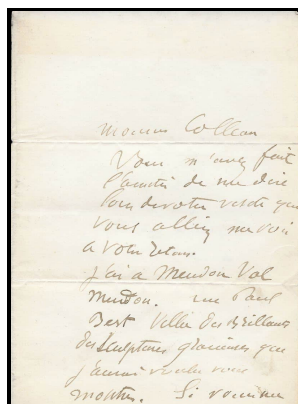 Monsieur Collean
Vous m'avez fait
l'amitié de me dire
lors de votre visite que
vous alliez me voir
a votre retour.
j'ai a Meudon Val
Meudon. rue Paul
Bert Villa des Brillants
des sculptures gracieuses que
j'aurai voulu vous
montrer. Si vous me